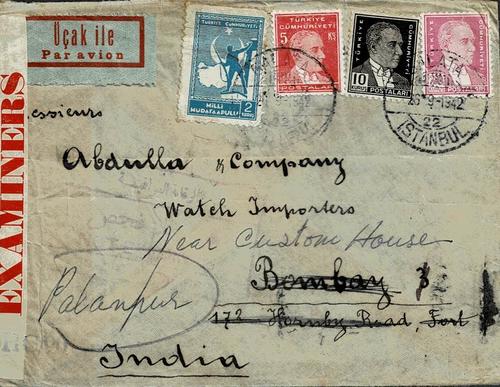 Uçak ile
Par avion
TÜRKİYE CUMHURİYETİ
MİLLİ
MÜDAFAA PULU
2
TÜRKİYE
CUMHURİYETİ
5 KŞ
POSTALARI
TÜRKİYE
CUMHURİYETİ
10
POSTALARI
TÜRKİYE
CUMHURİYETİ
GALATA
26-9-1942
22
İSTANBUL
EXAMINER
essieurs
Abdulla & Company
Watch Importers
Near Custom House
Bombay 3
Palanpur
172 Hornby Road, Fort
India